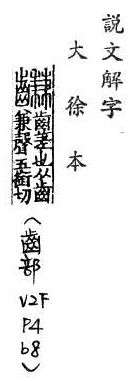 說文解字
大徐本
䶢齒差也从齒
兼聲五銜切
(齒部 V2F P4 b8)